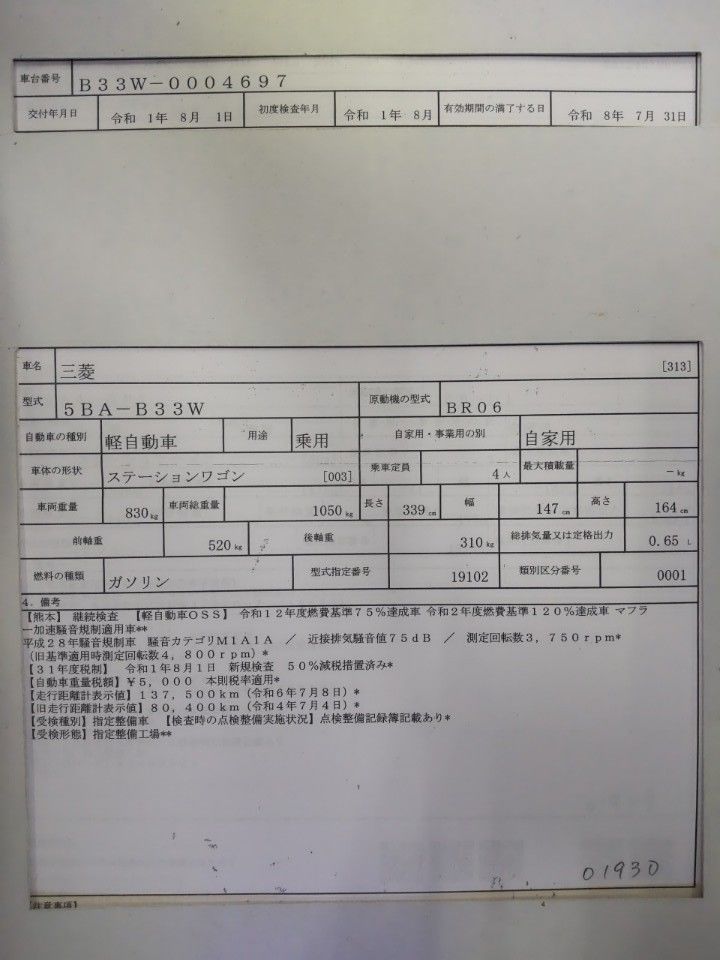 車台番号 B33W-0004697
交付年月日 令和 1年 8月 1日 初度検査年月 令和 1年 8月 有効期間の満了する日 令和 8年 7月 31日
車名 三菱 [313]
型式 5BA-B33W 原動機の型式 BR06
自動車の種別 軽自動車 用途 乗用 自家用・事業用の別 自家用
車体の形状 ステーションワゴン [003] 乗車定員 4人 最大積載量 -kg
車両重量 830kg 車両総重量 1050kg 長さ 339cm 幅 147cm 高さ 164cm
前軸重 520kg 後軸重 310kg 総排気量又は定格出力 0.65 L
燃料の種類 ガソリン 型式指定番号 19102 類別区分番号 0001
4. 備考
【熊本】 継続検査 【軽自動車OSS】 令和12年度燃費基準75%達成車 令和2年度燃費基準120%達成車 マフラ
ー加速騒音規制適用車**
平成28年騒音規制車 騒音カテゴリM1A1A / 近接排気騒音値75dB / 測定回転数3,750rpm*
(旧基準適用時測定回転数4,800rpm)*
【31年度税制】 令和1年8月1日 新規検査 50%減税措置済み*
【自動車重量税額】¥5,000 本則税率適用*
【走行距離計表示値】137,500km(令和6年7月8日)*
【旧走行距離計表示値】80,400km(令和4年7月4日)*
【受検種別】指定整備車 【検査時の点検整備実施状況】点検整備記録簿記載あり*
【受検形態】指定整備工場**
01930
[注意事項]